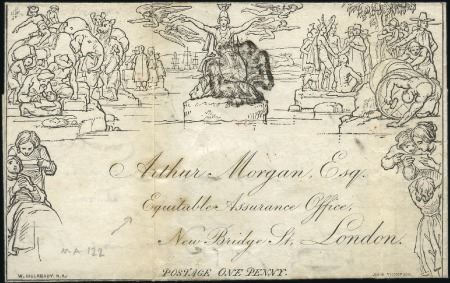 Arthur Morgan, Esq.
Equitable Assurance Office,
New Bridge St, London.
MA 122
POSTAGE ONE PENNY.
W. MULREADY, R.A.
JOHN THOMPSON